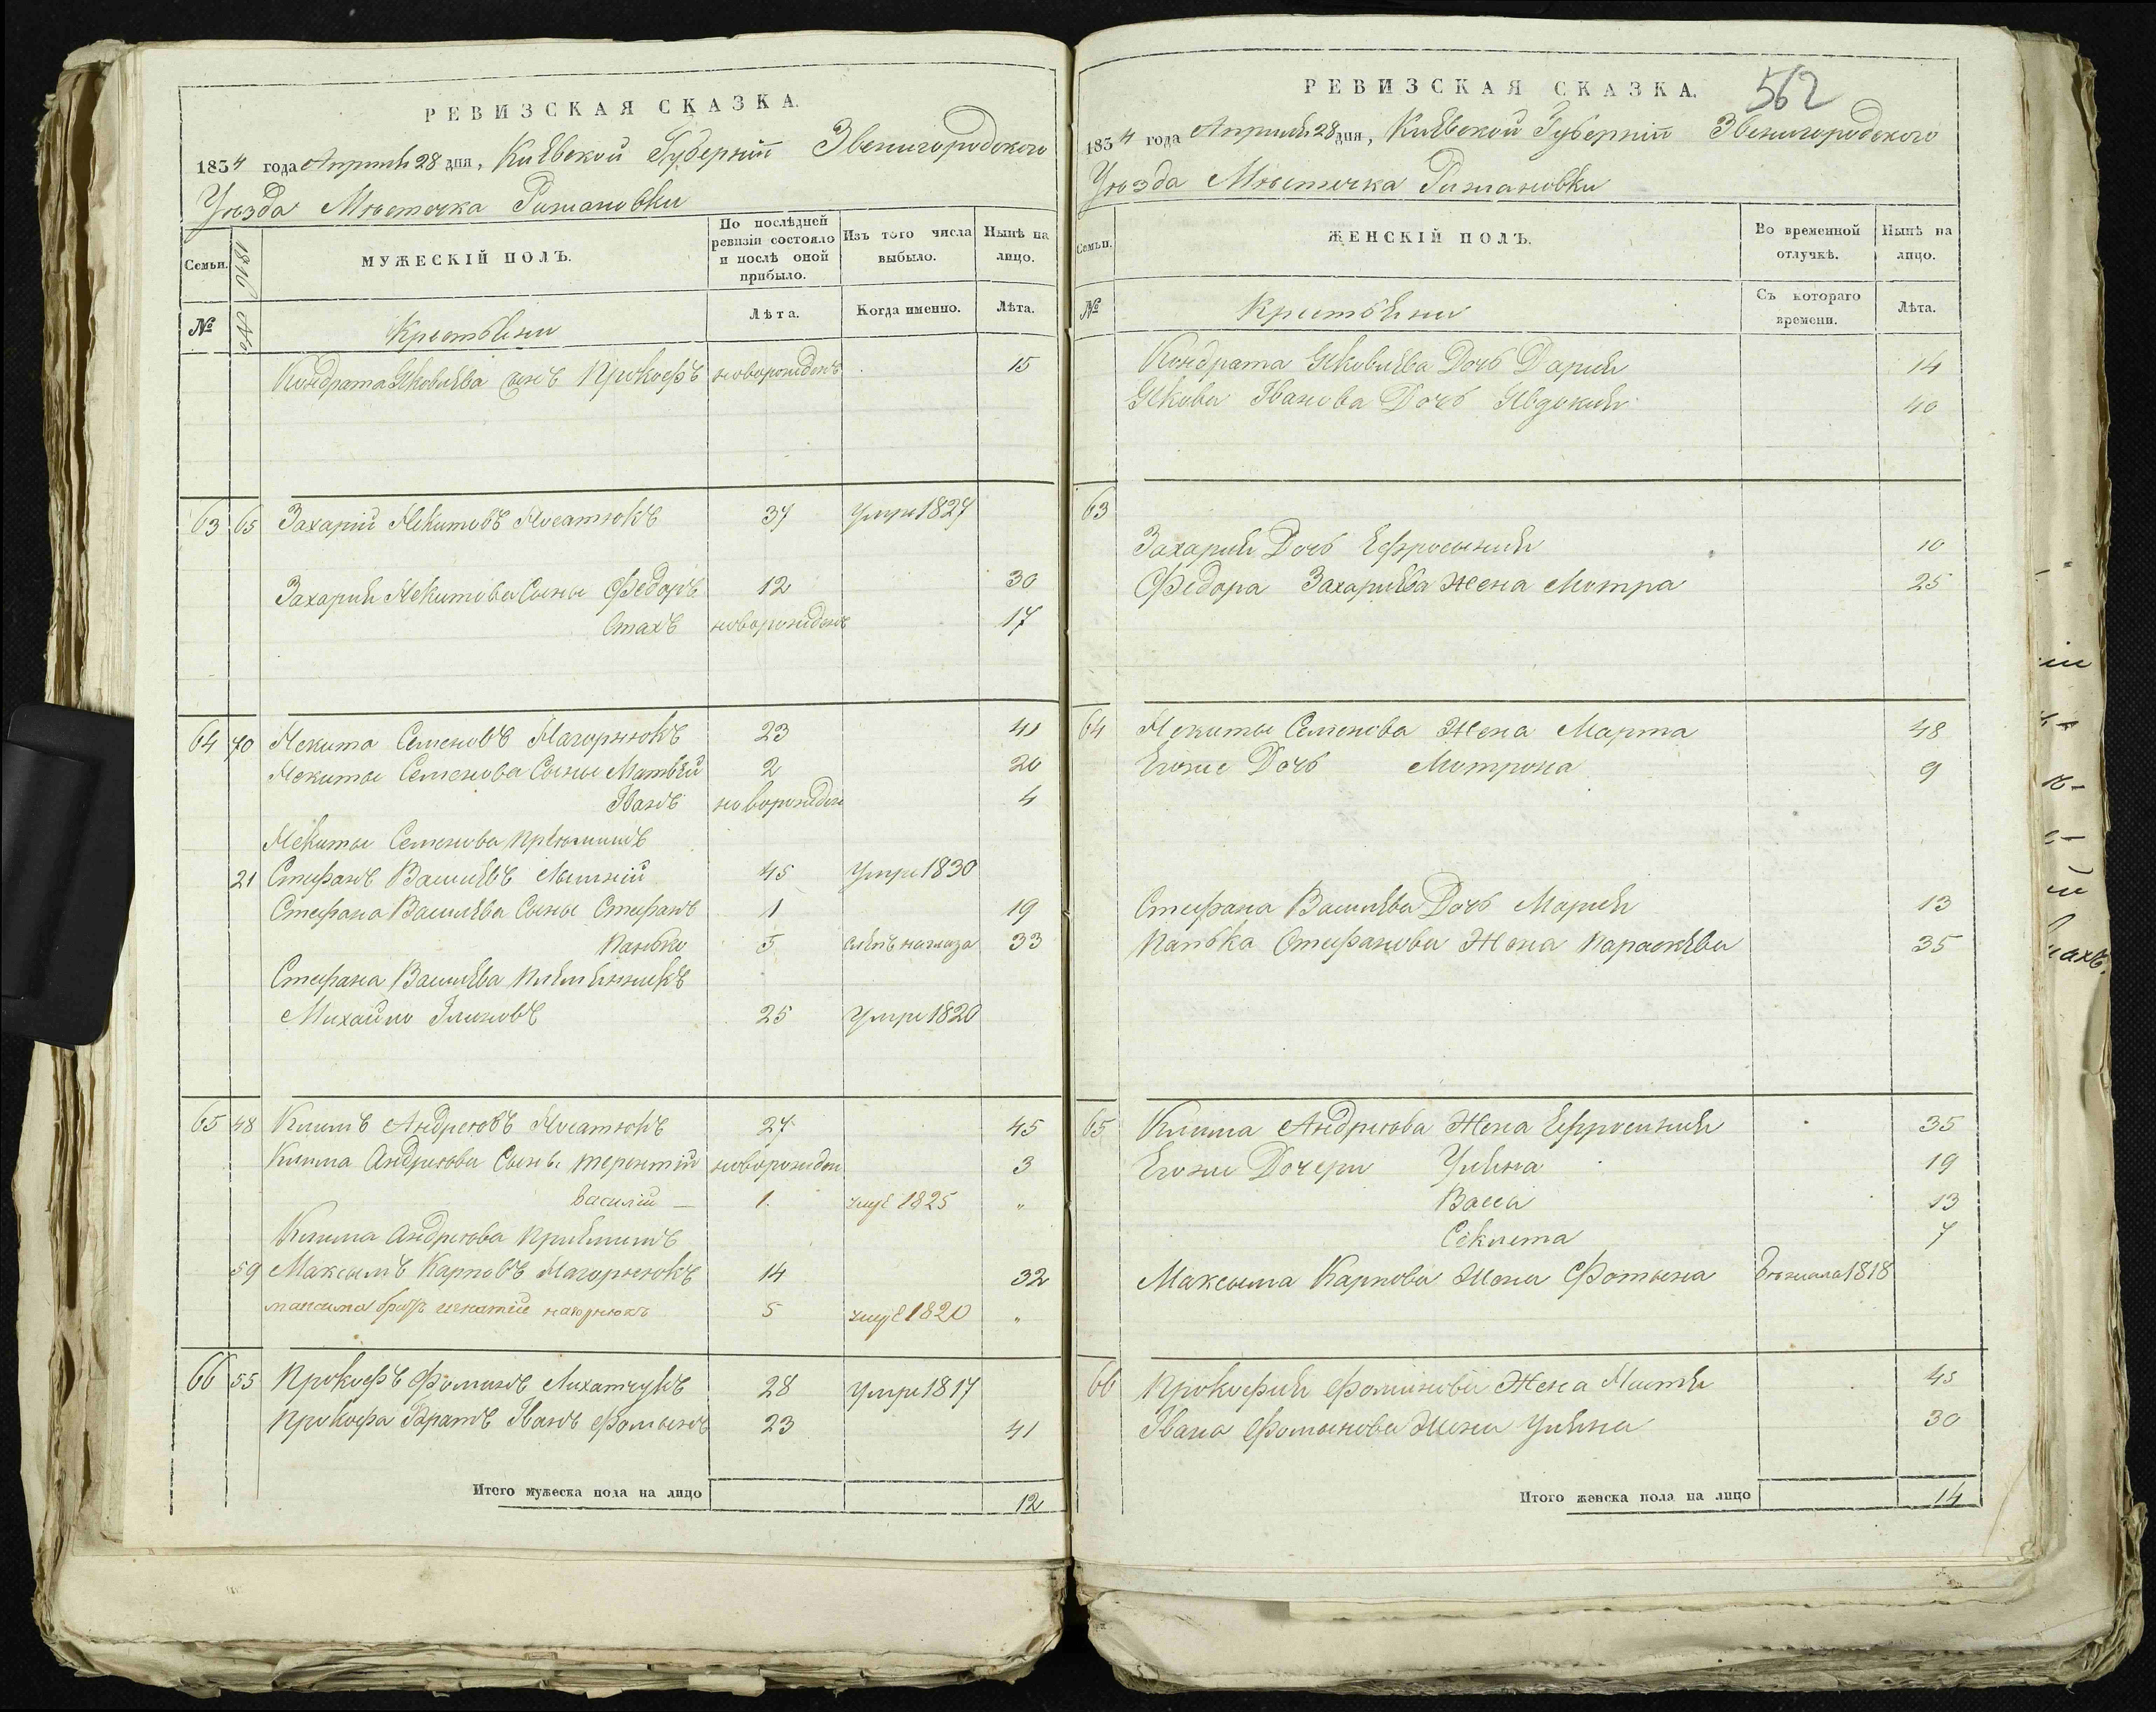 РЕВИЗСКАЯ СКАЗКА.
1834 года Априля 28 дня, Кіевской Губерніи Звенигородского
Уѣзда Мѣстечка Рижановки
Семьи. 1816 № МУЖЕСКІЙ ПОЛЪ. По послѣдней ревизіи состояло и послѣ оной прибыло. Изъ того числа выбыло. Нынѣ на лицо.
№ Крестьяни Лѣта. Когда именно. Лѣта.
Кондрата Яковлева сынъ Прокофъ новорожденъ 15
63 65 Захарій Никитовъ 37 умре 1827
Захарія Никитова Сыны Федоръ 12 30
Стахъ новорожденъ 17
64 70 Никита Семеновъ Нагорнюкъ 23 41
Никиты Семенова Сыны Матвѣй 2 20
Іванъ новорожден 4
Никиты Семенова
21 Стефанъ Василіевъ 45 умре 1830
Стефана Василіева Сыны Стефанъ 1 19
Панько 5 слѣпъ на глаза 33
Стефана Василіева племянникъ
Михайло 25 умре 1820
65 48 Климъ Андреювъ 27 45
Клима Андреюва Сынъ Терентій новорожден 3
Василій — 1. умре 1825 „
Клима Андреюва
59 Максымъ Карповъ Нагорнюкъ 14 32
максима братъ игнатій нагорнюкъ 5 умре 1820 „
66 55 Прокофъ Фоминъ 28 умре 1817
Прокофа Братъ Іванъ Фомынъ 23 41
Итого мужеска пола на лицо 12
562
РЕВИЗСКАЯ СКАЗКА.
1834 года Априля 28 дня, Кіевской Губерніи Звенигородского
Уѣзда Мѣстечка Рижановки
Семьи. ЖЕНСКІЙ ПОЛЪ. Во временной отлучкѣ. Нынѣ на лицо.
№ Крестьяни Съ котораго времени. Лѣта.
Кондрата Яковлева Дочь Дарія 14
Якова Іванова Дочь Явдокія 40
63
Захарія Дочь Ефросынія 10
Федора Захаріева Жена Мотра 25
64 Никиты Семенова Жена Марта 48
Егоже Дочь Мотрона 9
Стефана Василіева Дочь Марія 13
Панька Стефанова Жена Параскева 35
65 Клима Андреюва Жена Ефросинія 35
Егоже Дочери Уляна 19
Васса 13
Секлета 7
Максыма Карпова Жена Фотына 1818
66 Прокофія Фоминова Жена Настя 45
Івана Фомынова Жена Уляна 30
Итого женска пола на лицо 14